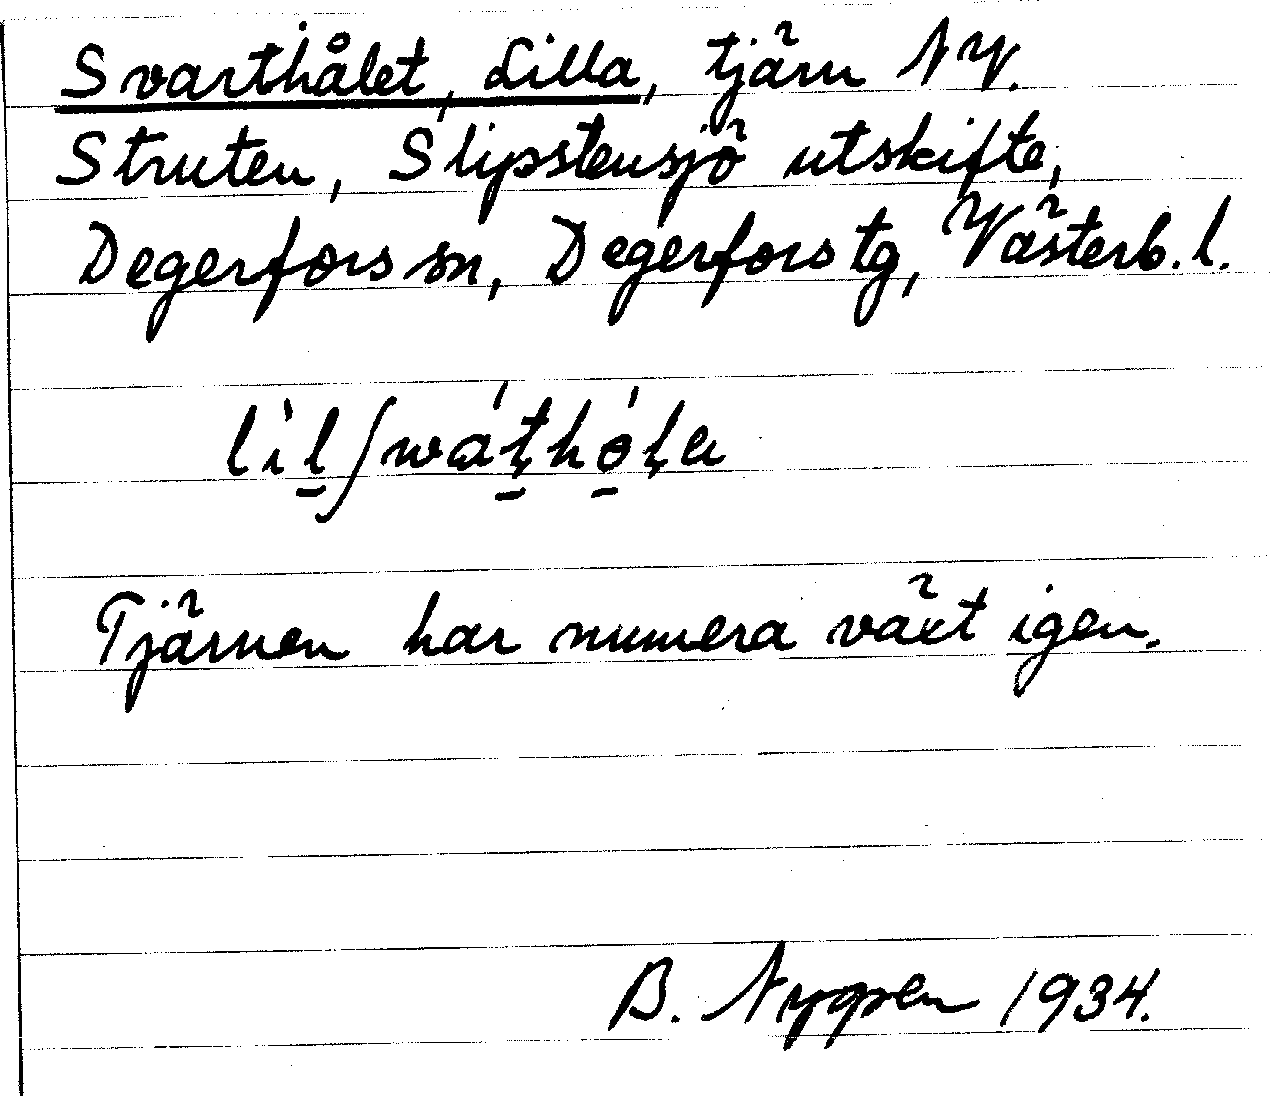 Svarthålet, Lilla, tjärn NV.
Struten, Slipstensjö utskifte,
Degerfors sn, Degerfors tg, Västerb. l.
Tjärnen har numera växt igen.
B. 1934.